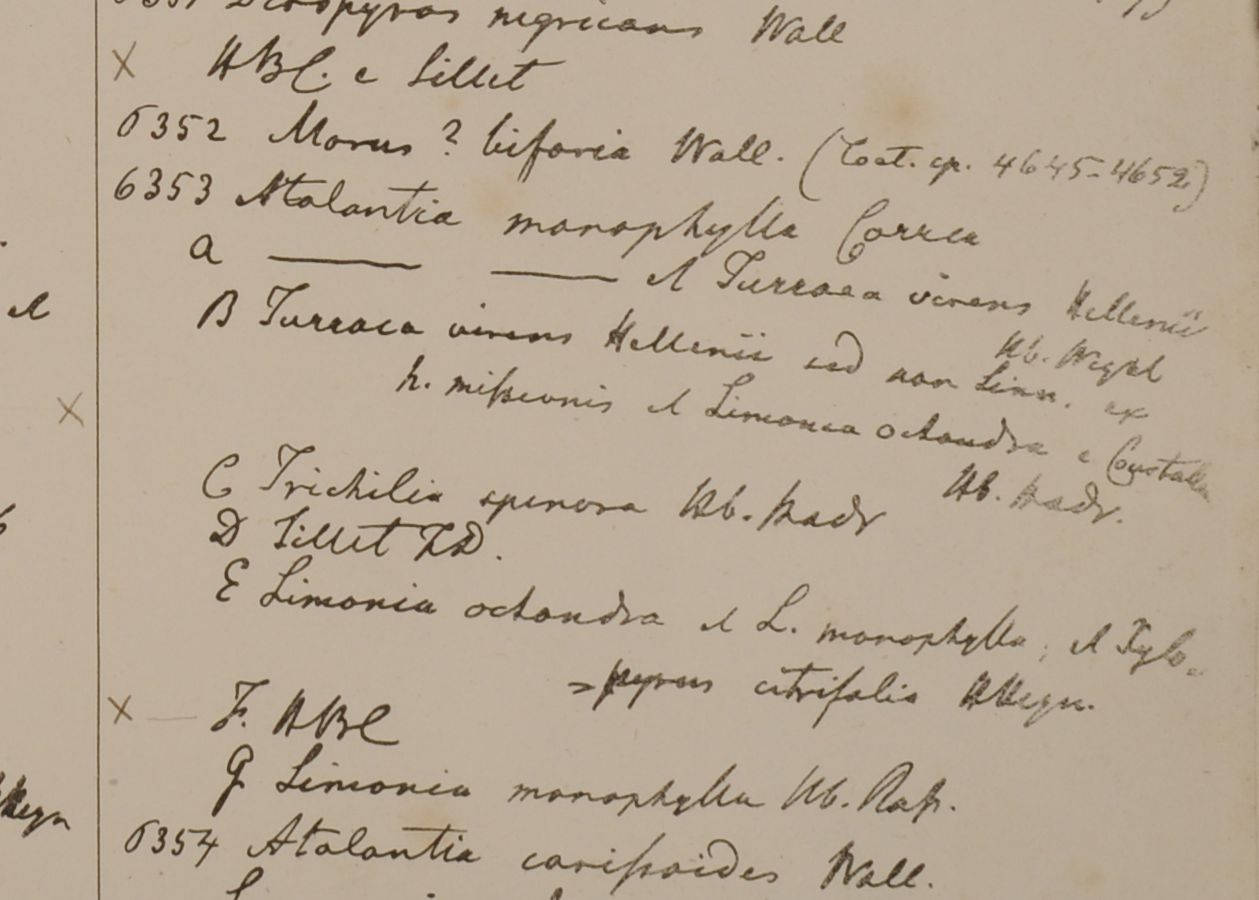 6351 Diospyros nigricans Wall
× HBC. e Sillet
6352 Morus? bifaria Wall. (Cat. cp. 4645-4652)
6353 Atalantia monophylla Correa
A ——— ——— et Turraea virens Hellenii
Hb. Wight
B Turraea virens Hellenii sed non Linn. ex
h. missionis et Limonia octandra e
Hb. Madr.
C Trichilia spinosa Hb. Madr
D Sillet FD.
E Limonia octandra et L. monophylla, et Xylo-
=pyrus citrifolia HHeyn.
× — F. HBC
G Limonia monophylla Hb. Ross.
6354 Atalantia carissoides Wall.
et
×
HHeyn